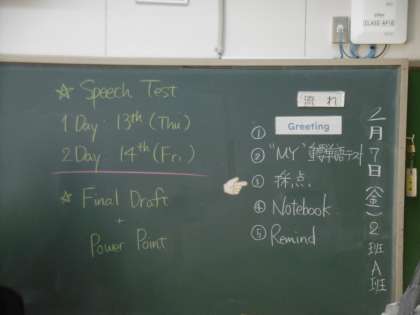 ☆ Speech Test
1 Day 13th (Thu)
2 Day 14th (Fri.)
☆ Final Draft
+
Power Point
流れ
① Greeting
② "MY" 単語テスト
③ 採点
④ Notebook
⑤ Remind
2月7日(金)2班A班